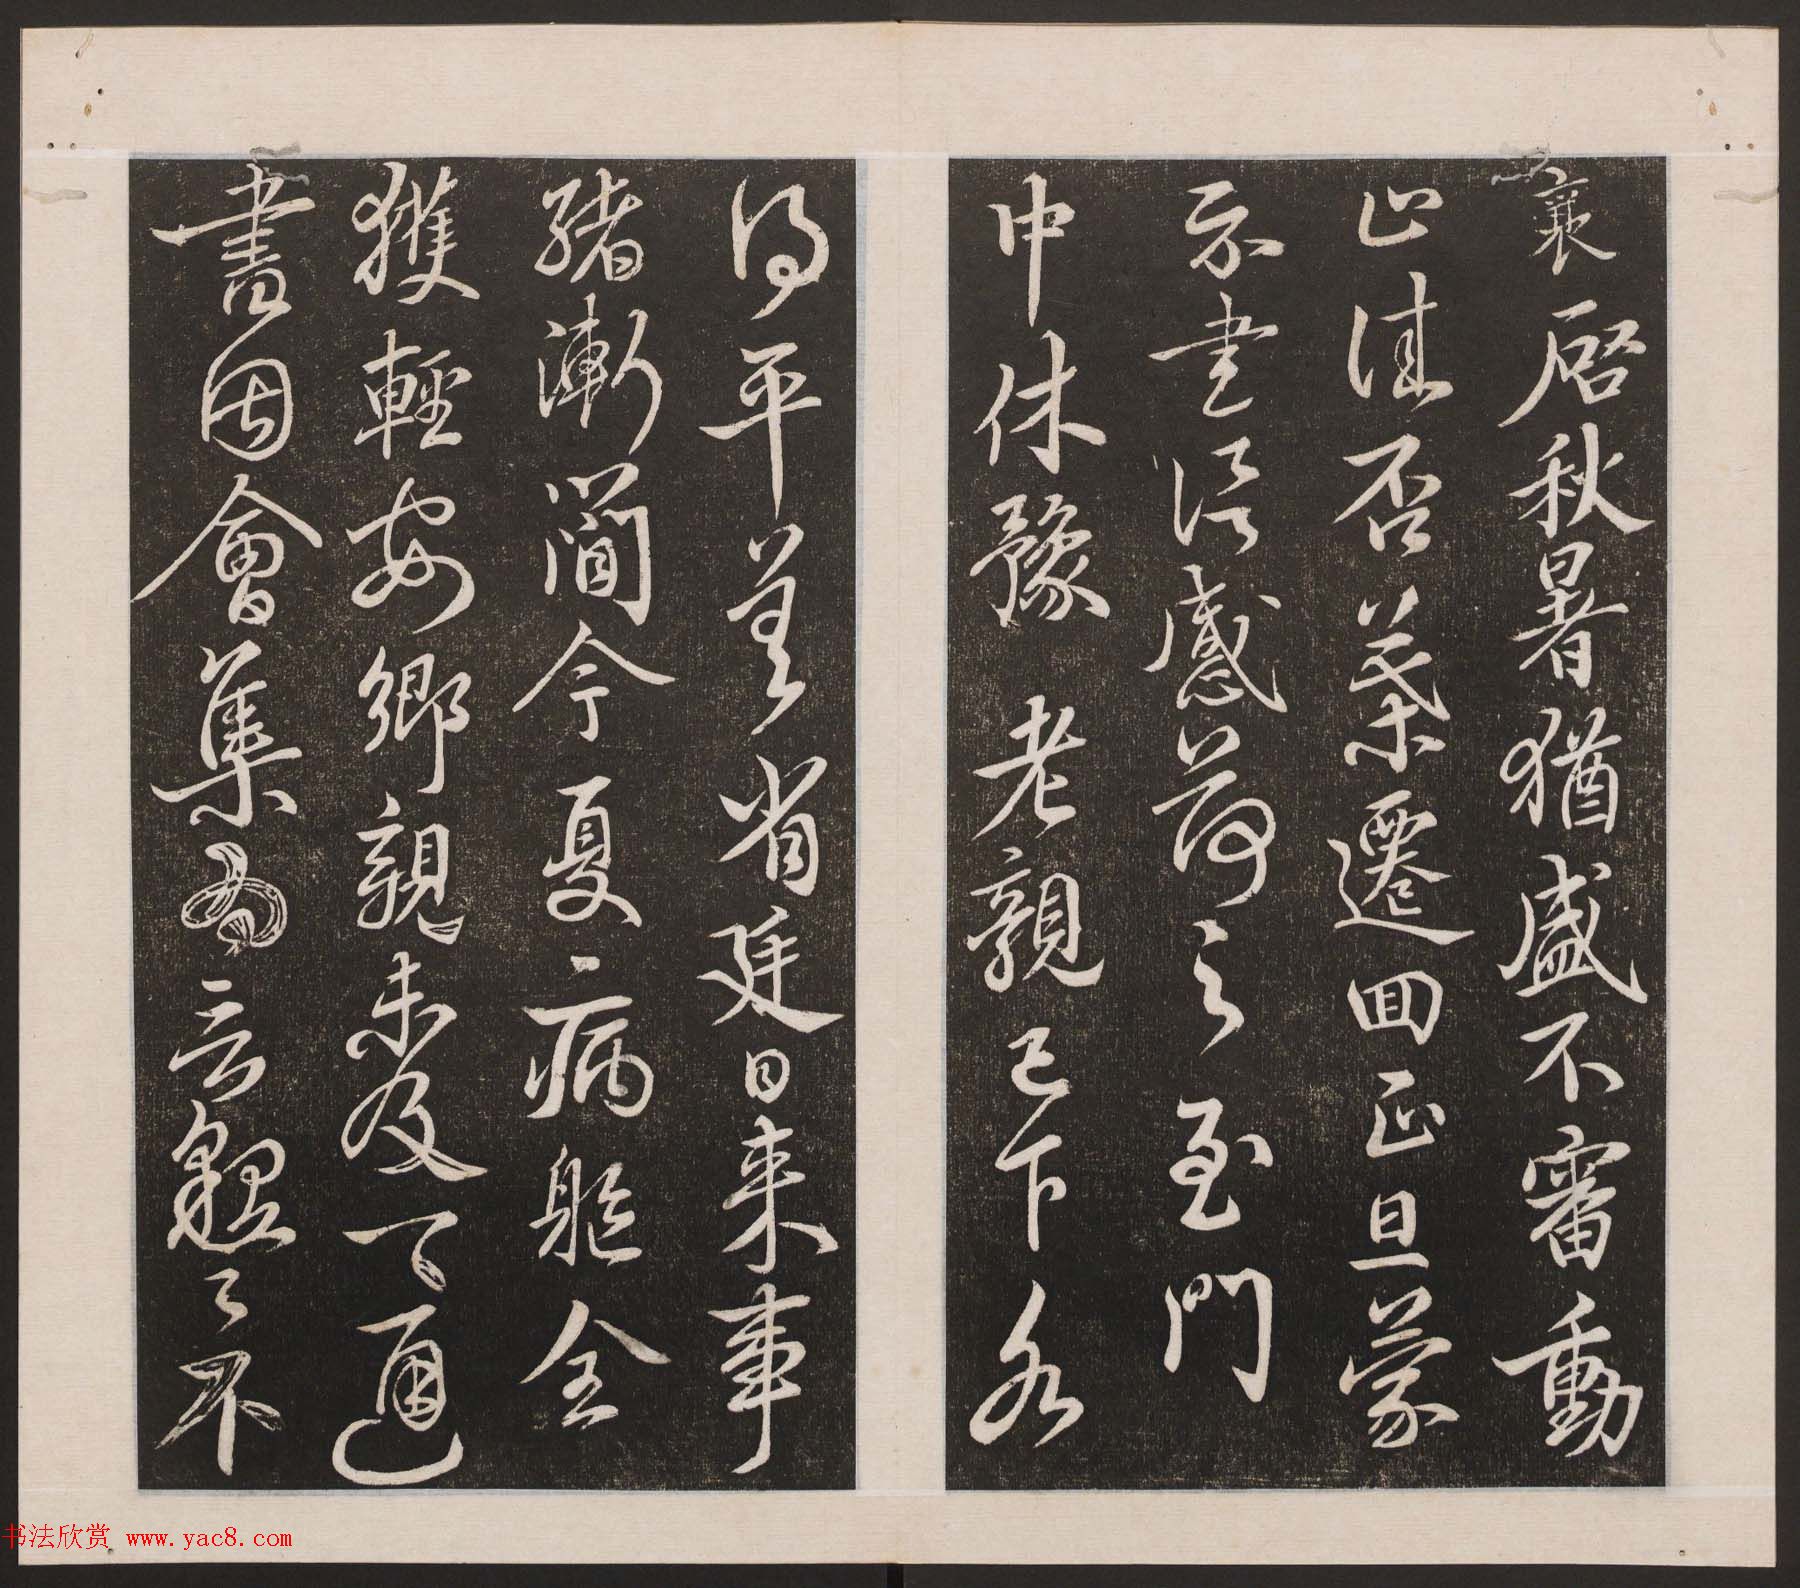 襄啓秋暑猶盛不審動
止佳否葉遷回正旦蒙
示書深感荷之至門
中休豫老親已下各
得平善省廷日來事
緒漸簡今夏病軀全
獲輕安鄉親未及一一通
書因會集為言不
书法欣赏 www.yac8.com